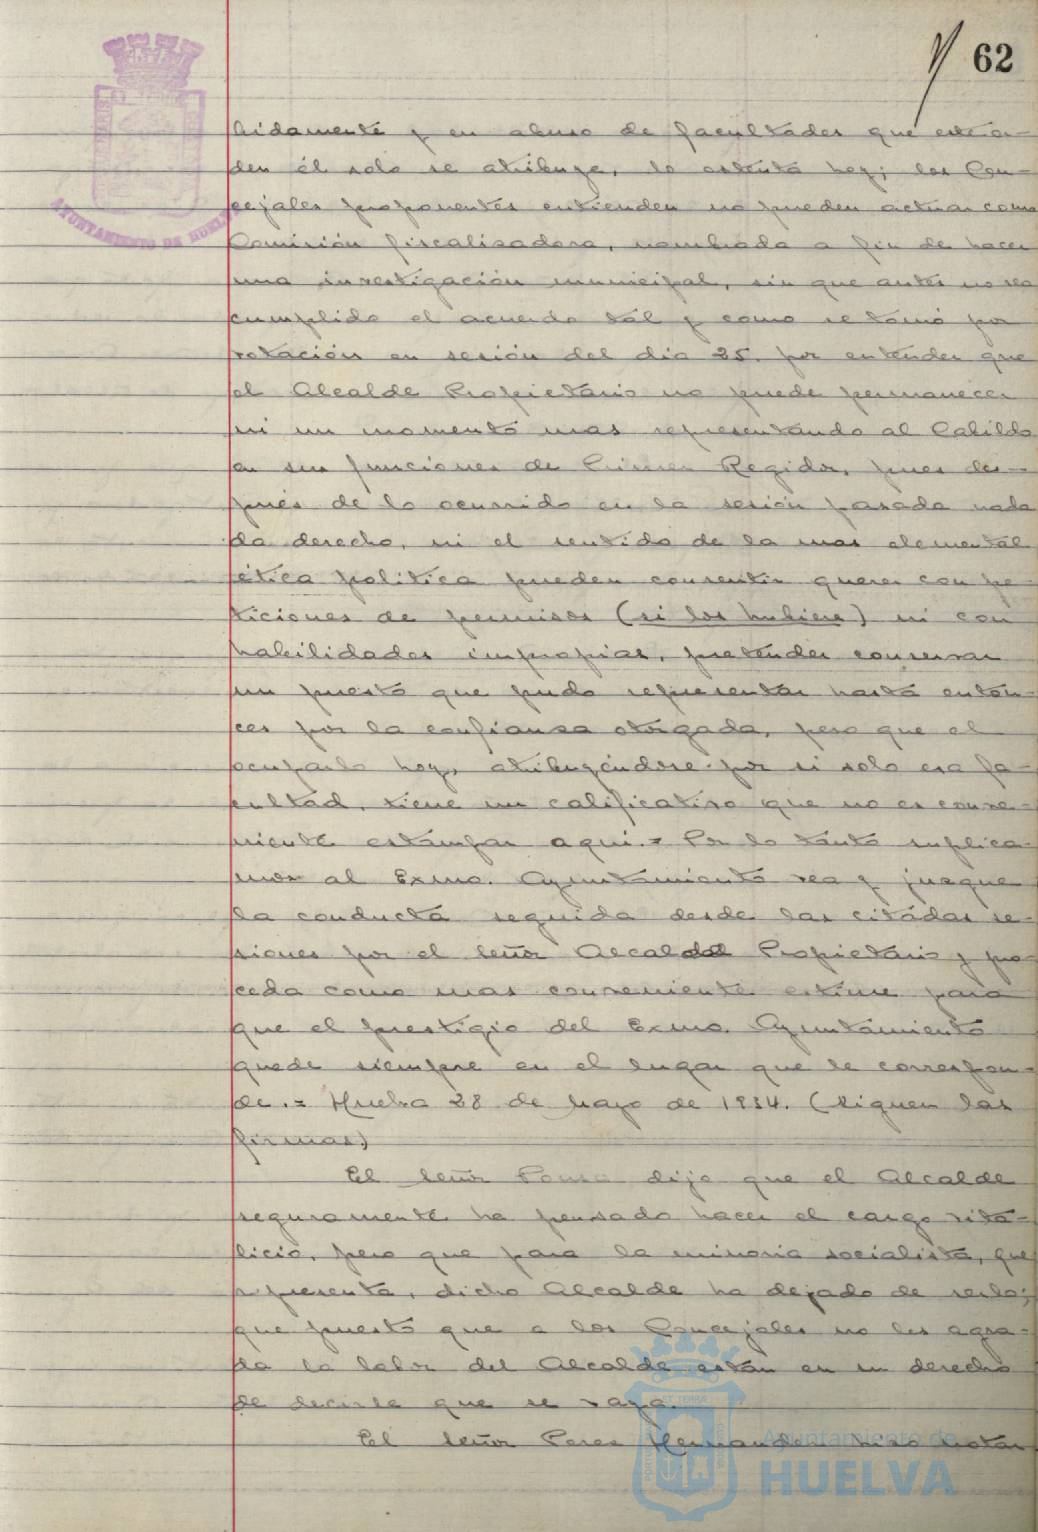 62
AYUNTAMIENTO DE HUELVA
bidamente y en abuso de facultades que
den él solo se atribuye, lo ostenta hoy; los Con-
cejales proponentes entienden no pueden actuar como
Comisión fiscalizadora, nombrada a fin de hacer
una investigación municipal, sin que antes no sea
cumplido el acuerdo tal y como se tomó por
votación en sesión del dia 25. por entender que
el Alcalde Propietario no puede permanecer
ni un momento mas representando al Cabildo
en sus funciones de Primer Regidor, pues des-
pués de lo ocurrido en la sesión pasada nada
da derecho, ni el sentido de la mas elemental
ética politica pueden consentir querer con pe-
ticiones de permisos (si los hubiere) ni con
habilidades impropias, pretender conservar
un puesto que pudo representar hasta enton-
ces por la confianza otorgada, pero que el
ocuparlo hoy, atribuyéndose por si solo esa fa-
cultad, tiene un calificativo que no es conve-
niente estampar aqui.= Por lo tanto suplica-
mos al Exmo. Ayuntamiento vea y juzgue
la conducta seguida desde las citadas se-
siones por el señor Alcalde Propietario y pro-
ceda como mas conveniente estime para
que el prestigio del Exmo. Ayuntamiento
quede siempre en el lugar que le correspon-
de.= Huelva 28 de Mayo de 1934. (Siguen las
firmas)
El señor Ponce dijo que el Alcalde
seguramente ha pensado hacer el cargo vita-
licio, pero que para la minoria socialista, que
representa, dicho Alcalde ha dejado de serlo;
que puesto que a los Concejales no les agra-
da la labor del Alcalde están en su derecho
de decirle que se vaya.
El señor Perez Hernandez hizo notar
Ayuntamiento de
HUELVA